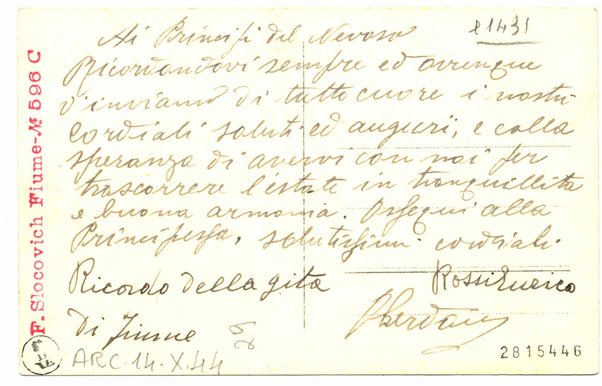 e 1431
Ai Principi del Nevoso
Ricordandovi sempre ed ovunque
v'inviamo di tutto cuore i nostri
cordiali saluti ed auguri, e colla
speranza di avervi con noi per
trascorrere l'estate in tranquillità
e buona armonia. Ossequi alla
Principessa, salutissimi cordiali.
Ricordo della gita
Di Fiume
Rossi Enrico
F. Slocovich Fiume-№ 596 C
ARC.14.X.44
2815446